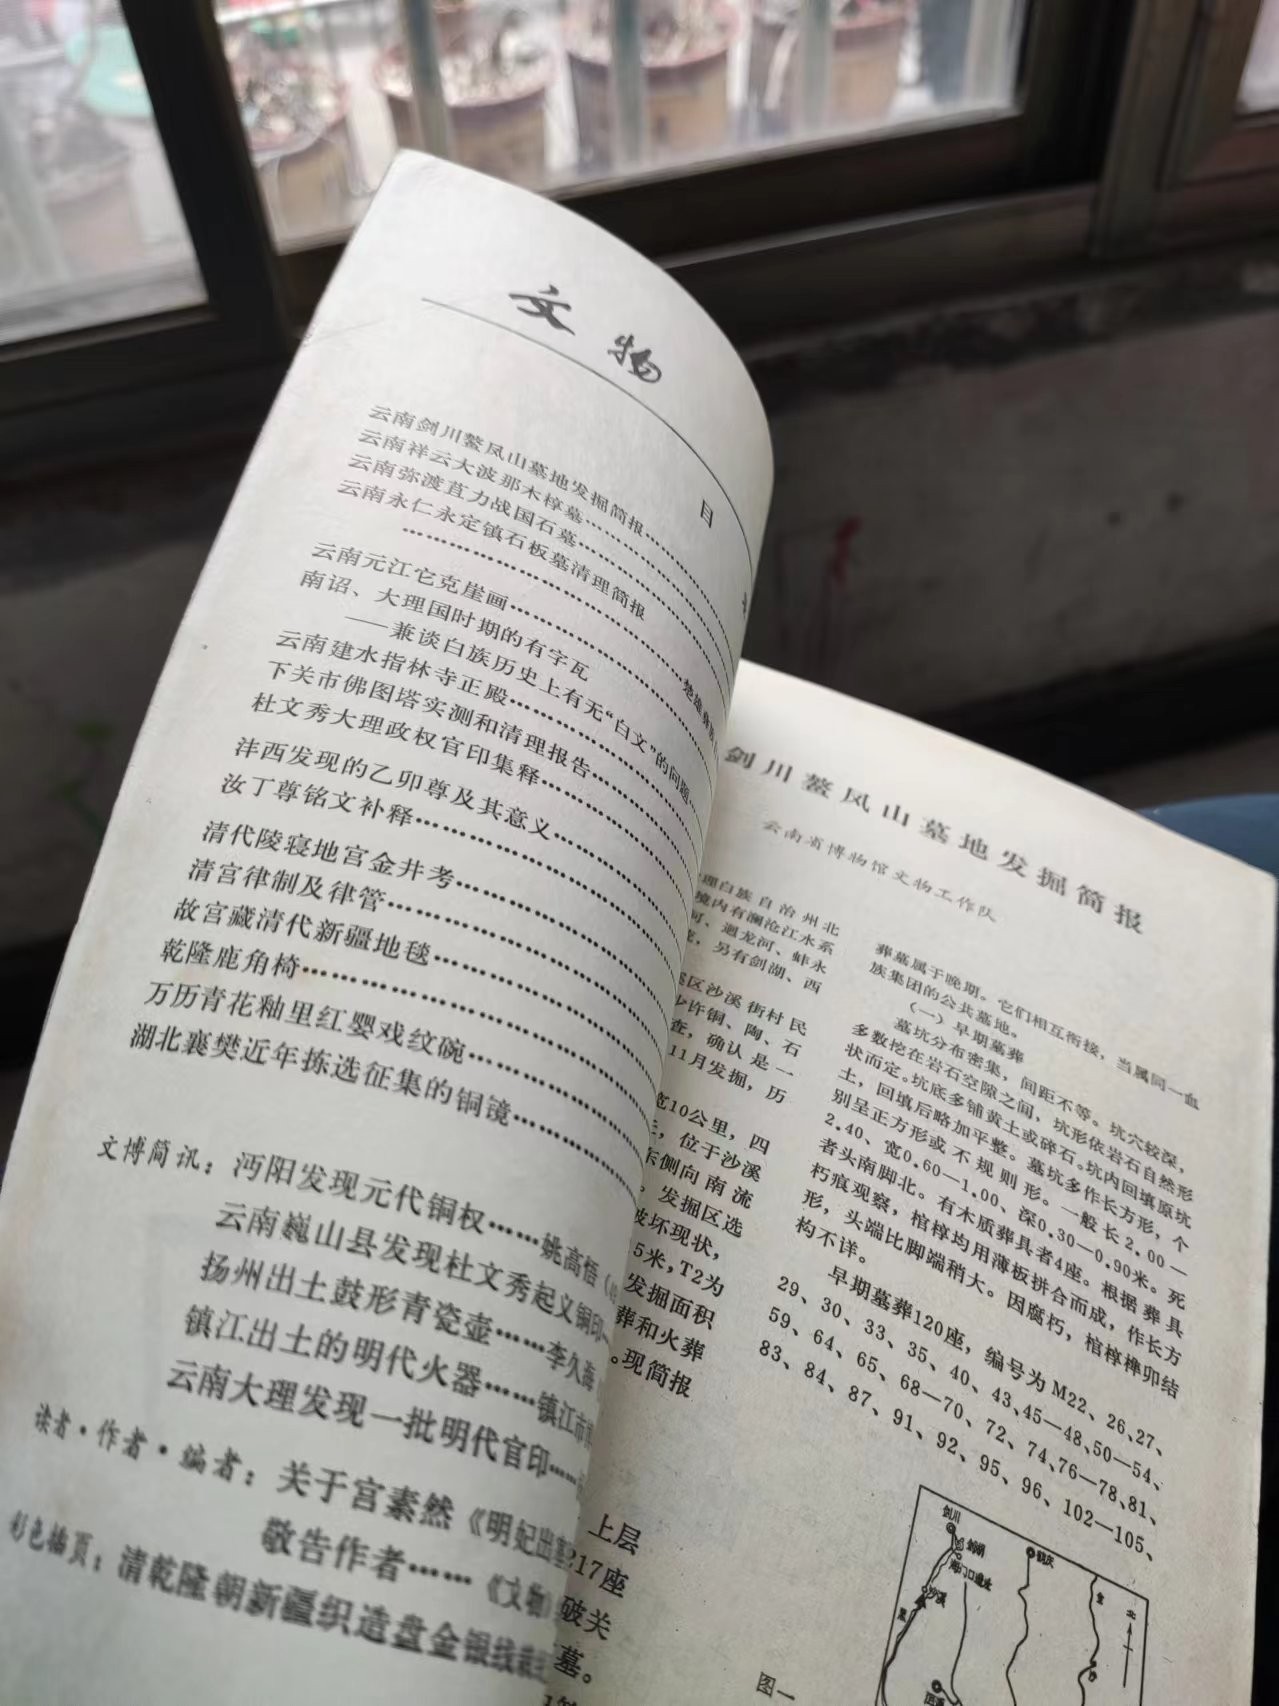 文物
目
云南剑川鳌凤山墓地发掘简报……
云南祥云大波那木椁墓……
云南弥渡苴力战国石墓……
云南永仁永定镇石板墓清理简报
……楚雄彝族
云南元江它克崖画……
南诏、大理国时期的有字瓦
——兼谈白族历史上有无“白文”的问题……
云南建水指林寺正殿……
下关市佛图塔实测和清理报告……
杜文秀大理政权官印集释……
沣西发现的乙卯尊及其意义……
汝丁尊铭文补释……
清代陵寝地宫金井考……
清宫律制及律管……
故宫藏清代新疆地毯……
乾隆鹿角椅……
万历青花釉里红婴戏纹碗……
湖北襄樊近年拣选征集的铜镜……
文博简讯：沔阳发现元代铜权……姚高悟
云南巍山县发现杜文秀起义铜印
扬州出土鼓形青瓷壶……李久海
镇江出土的明代火器……镇江市
云南大理发现一批明代官印……
读者·作者·编者：关于宫素然《明妃出塞
敬告作者……《文物》
彩色插页：清乾隆朝新疆织造盘金银线
剑川鳌凤山墓地发掘简报
云南省博物馆文物工作队
理白族自治州北
境内有澜沧江水系
河、迴龙河、蚌永
另有剑湖、西
区沙溪街村民
少许铜、陶、石
查，确认是一
11月发掘，历
宽10公里，四
位于沙溪
东侧向南流
。发掘区选
破坏现状，
5米，T2为
发掘面积
葬和火葬
。现简报
上层
217座
破关
墓。
葬墓属于晚期。它们相互衔接，当属同一血
族集团的公共墓地。
（一）早期墓葬
墓坑分布密集，间距不等。坑穴较深，
多数挖在岩石空隙之间，坑形依岩石自然形
状而定。坑底多铺黄土或碎石。坑内回填原坑
土，回填后略加平整。墓坑多作长方形，个
别呈正方形或不规则形。一般长2.00—
2.40、宽0.60—1.00、深0.30—0.90米。死
者头南脚北。有木质葬具者4座。根据葬具
朽痕观察，棺椁均用薄板拼合而成，作长方
形，头端比脚端稍大。因腐朽，棺椁榫卯结
构不详。
早期墓葬120座，编号为M22、26、27、
29、30、33、35、40、43、45—48、50—54、
59、64、65、68—70、72、74、76—78、81、
83、84、87、91、92、95、96、102—105、
剑川
剑湖
海门口遗址
沙溪
鹤庆
金
北
黑
图一